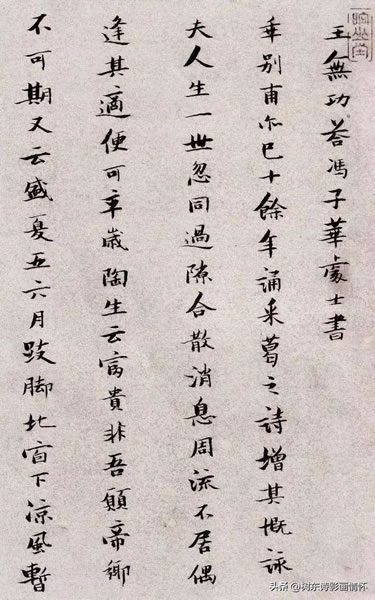 王無功荅馮子華處士書
乖別甫尔已十餘年誦采葛之詩增其慨詠
夫人生一世忽同過隙合散消息周流不居偶
逢其適便可卒歲陶生云富貴非吾願帝鄉
不可期又云盛夏五六月跂脚北窗下涼風暫
头条 @树东诗影画情怀